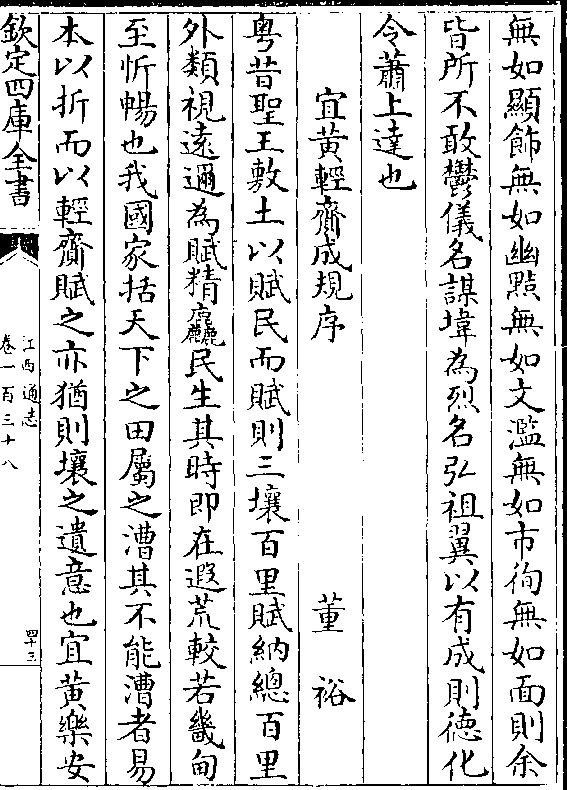 無如顯飾無如幽㸃無如文濫無如市徇無如面則余
皆所不敢鬱儀名謀㙔為烈名弘祖翼以有成則德化
令蕭上達也
宜黄輕齎成規序 董裕
粤昔聖王敷土以賦民而賦則三壤百里賦納總百里
外類視逺邇為賦精麤民生其時即在遐荒較若畿甸
至忻暢也我國家括天下之田屬之漕其不能漕者易
本以折而以輕齎賦之亦猶則壤之遺意也宜黄樂安
欽定四庫全書
江西通志
卷一百三十八
四十三